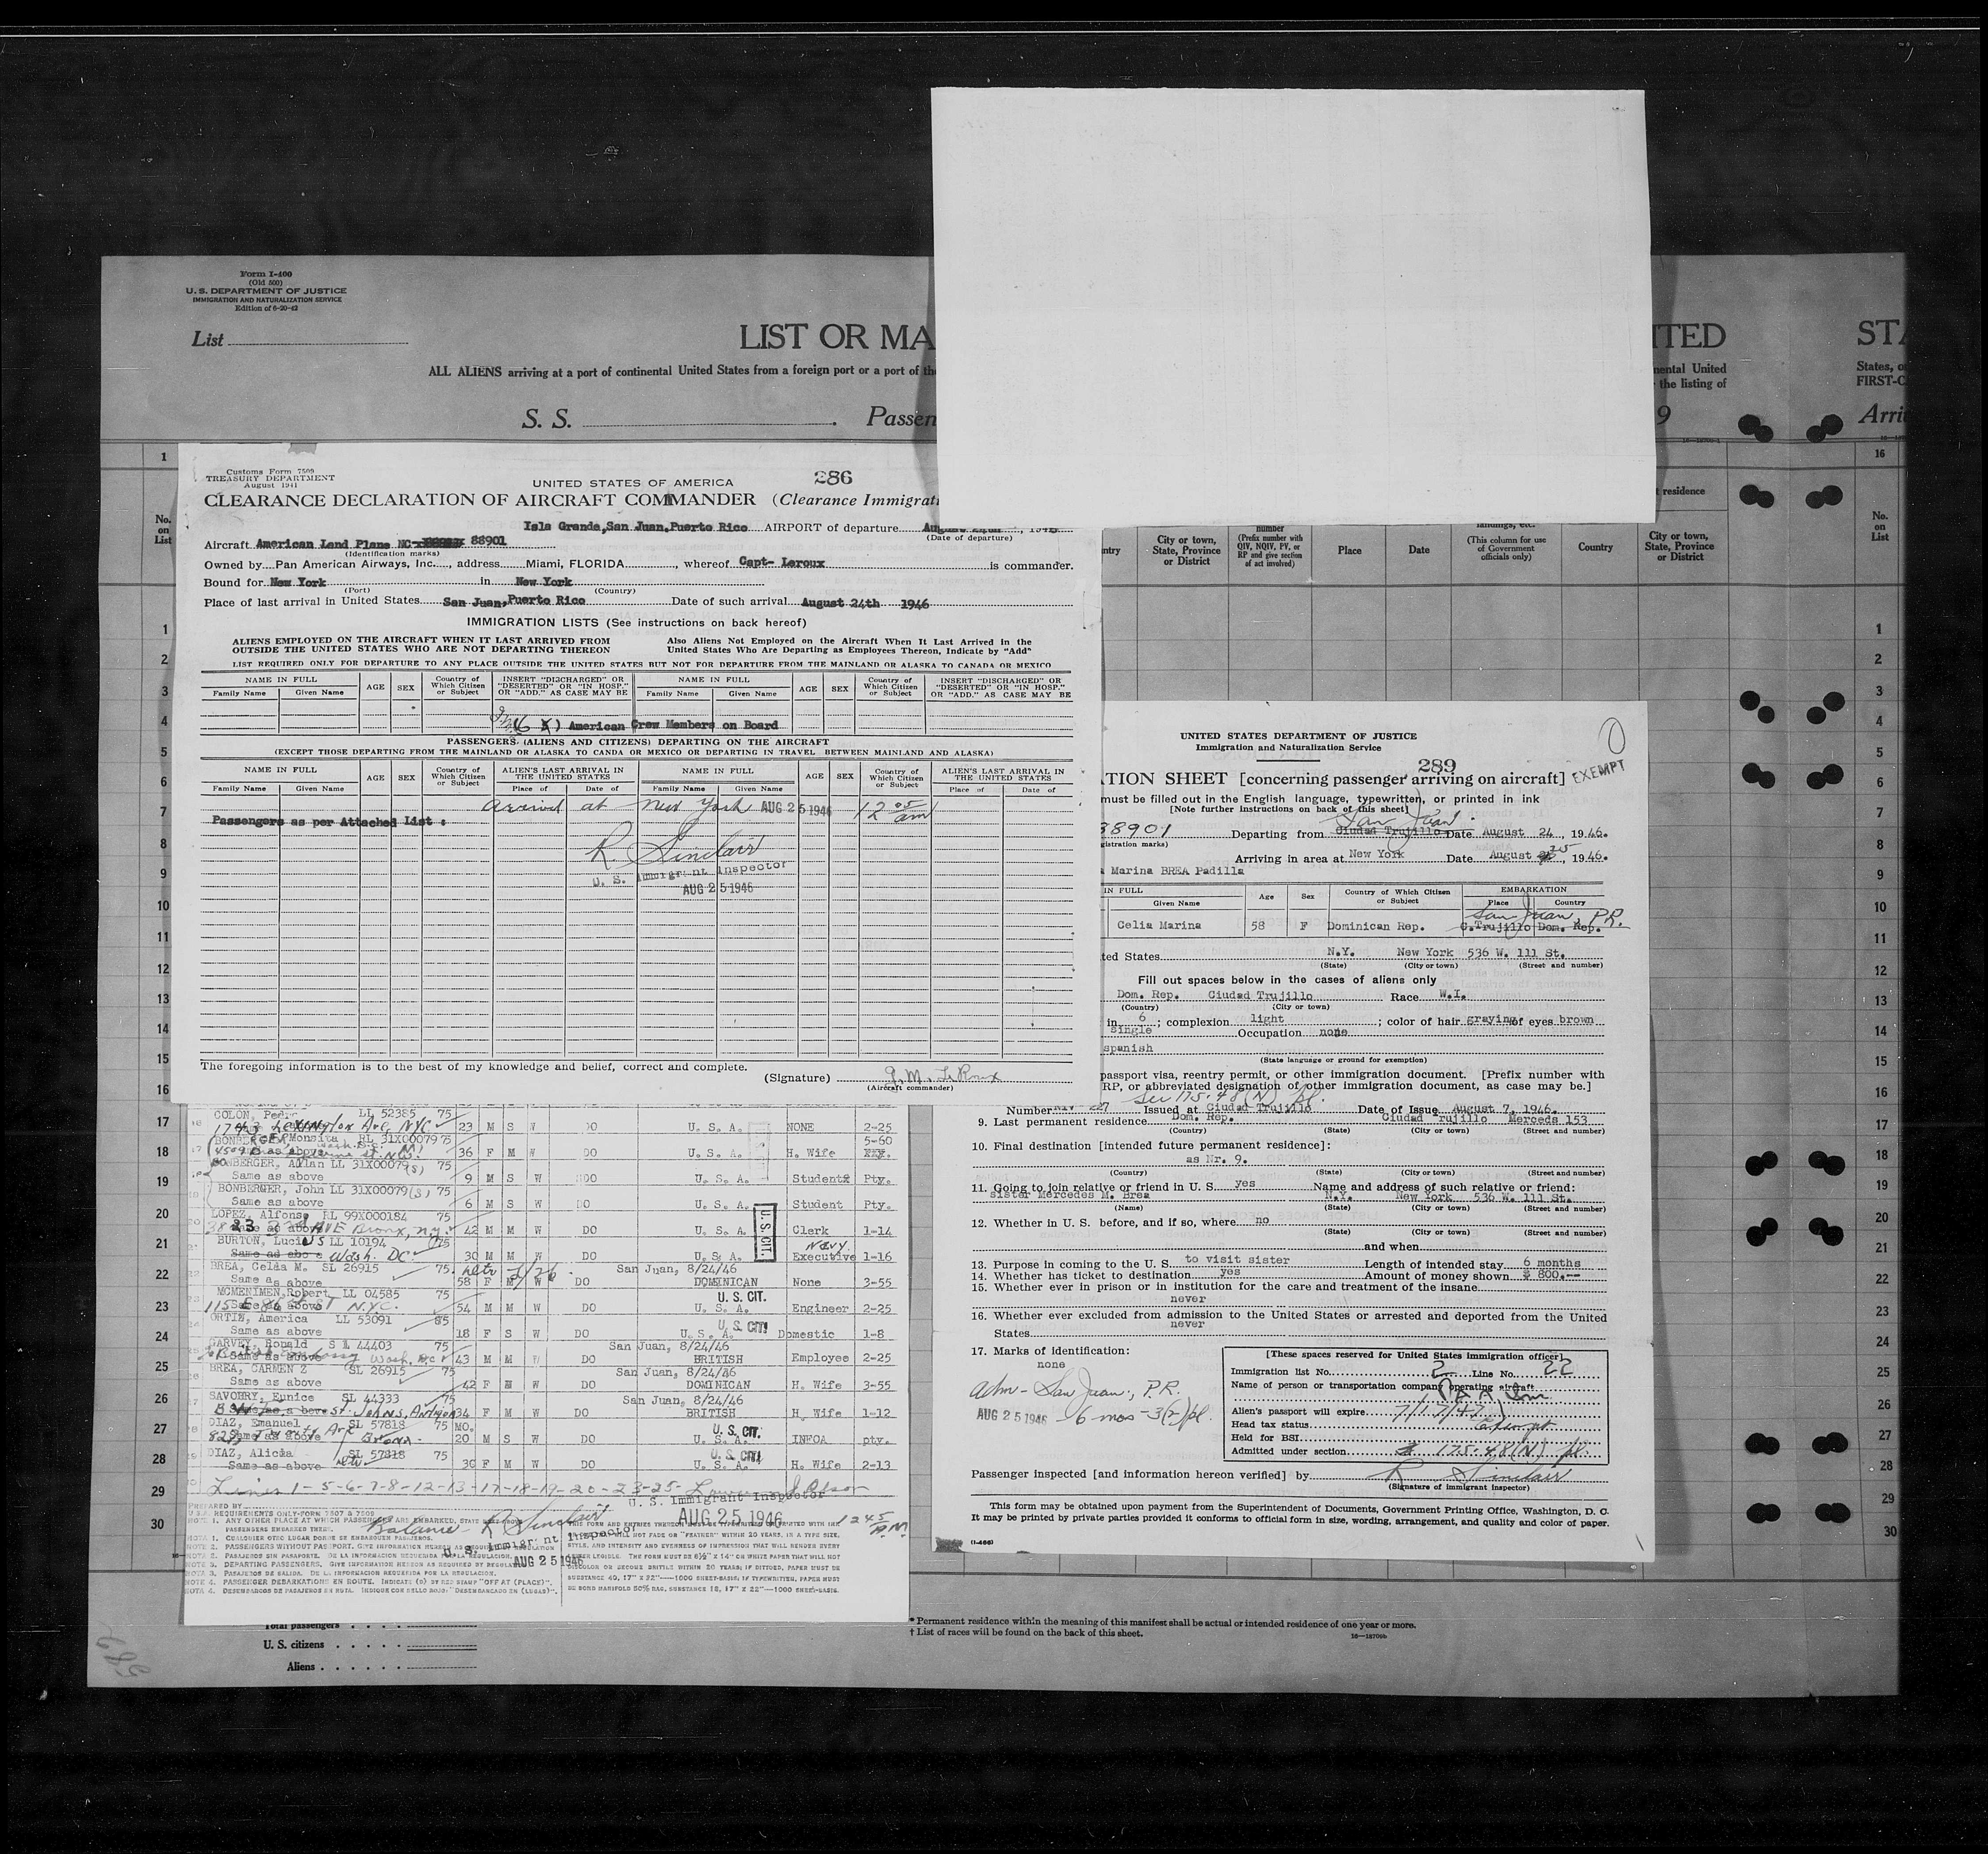 Form I-400
(Old 500)
U. S. DEPARTMENT OF JUSTICE
IMMIGRATION AND NATURALIZATION SERVICE
Edition of 6-20-42
List
LIST OR MA
ITED
STA
ALL ALIENS arriving at a port of continental United States from a foreign port or a port of the
nental United
the listing of
States, o
FIRST-C
S. S.
Passen
9
Arri
Customs Form 7509
TREASURY DEPARTMENT
August 1941
UNITED STATES OF AMERICA
286
CLEARANCE DECLARATION OF AIRCRAFT COMMANDER (Clearance Immigrati
Isla Grande, San Juan, Puerto Rico AIRPORT of departure
(Date of departure)
Aircraft American Land Plane NC- 88901
(Identification marks)
Owned by Pan American Airways, Inc., address Miami, FLORIDA, whereof Capt- Leroux is commander.
Bound for New York in New York
(Port) (Country)
Place of last arrival in United States San Juan, Puerto Rico Date of such arrival August 24th 1946
IMMIGRATION LISTS (See instructions on back hereof)
ALIENS EMPLOYED ON THE AIRCRAFT WHEN IT LAST ARRIVED FROM
OUTSIDE THE UNITED STATES WHO ARE NOT DEPARTING THEREON
Also Aliens Not Employed on the Aircraft When It Last Arrived in the
United States Who Are Departing as Employees Thereon, Indicate by "Add"
LIST REQUIRED ONLY FOR DEPARTURE TO ANY PLACE OUTSIDE THE UNITED STATES BUT NOT FOR DEPARTURE FROM THE MAINLAND OR ALASKA TO CANADA OR MEXICO
NAME IN FULL AGE SEX Country of Which Citizen or Subject INSERT "DISCHARGED" OR "DESERTED" OR "IN HOSP." OR "ADD." AS CASE MAY BE NAME IN FULL AGE SEX Country of Which Citizen or Subject INSERT "DISCHARGED" OR "DESERTED" OR "IN HOSP." OR "ADD." AS CASE MAY BE
Family Name Given Name Family Name Given Name
American Crew Members on Board
PASSENGERS (ALIENS AND CITIZENS) DEPARTING ON THE AIRCRAFT
(EXCEPT THOSE DEPARTING FROM THE MAINLAND OR ALASKA TO CANDA OR MEXICO OR DEPARTING IN TRAVEL BETWEEN MAINLAND AND ALASKA)
NAME IN FULL AGE SEX Country of Which Citizen or Subject ALIEN'S LAST ARRIVAL IN THE UNITED STATES NAME IN FULL AGE SEX Country of Which Citizen or Subject ALIEN'S LAST ARRIVAL IN THE UNITED STATES
Family Name Given Name Place of Date of Family Name Given Name Place of Date of
Arrived at New York AUG 25 1946 12 05 am
Passengers as per Attached List :
R. Sinclair
U. S. Immigrant Inspector
AUG 25 1946
The foregoing information is to the best of my knowledge and belief, correct and complete.
(Signature) J. M. LeRoux
(Aircraft commander)
COLON, Pedr LL 52385 75
Lexington Ave NYC 23 M S W DO U. S. A. NONE 2-25
Monsita RL 31X00079 75 5-60
as above 36 F M W DO U. S. A. H. Wife
BONBERGER, Allan LL 31X00079 (S) 75
Same as above 9 M S W DO U. S. A. Student Pty.
BONBERGER, John LL 31X00079 (S) 75
Same as above 6 M S W DO U. S. A. Student Pty.
LOPEZ, Alfonso RL 99X000184 75
42 M M W DO U. S. A. Clerk 1-14
BURTON, Lucius LL 10194 75 Navy
Same as above Wash. DC 30 M M W DO U. S. A. Executive 1-16
U.S. CIT.
BREA, Celda M. SL 26915 75 San Juan, 8/24/46
Same as above 58 F W DO DOMINICAN None 3-55
MCMENIMEN, Robert LL 04585 75 U. S. CIT.
Same as above N.Y.C. 54 M M W DO U. S. A. Engineer 2-25
ORTIZ, America LL 53091 85 U. S. CIT.
Same as above 18 F S W DO U. S. A. Domestic 1-8
GARVEY, Ronald SL 44403 75 San Juan, 8/24/46
Same as above 43 M M W DO BRITISH Employee 2-25
BREA, CARMEN Z SL 26915 75 San Juan, 8/24/46
Same as above 42 F M W DO DOMINICAN H. Wife 3-55
SAVORRY, Eunice SL 44333 75 San Juan, 8/24/46
St. Johns, Antigua 34 F M W DO BRITISH H. Wife 1-12
DIAZ, Emanuel SL 57818 75 MO. U. S. CIT.
Same as above Bronx. 20 M S W DO U. S. A. INFOA pty.
DIAZ, Alicia SL 57818 75 U. S. CIT.
Same as above 30 F M W DO U. S. A. H. Wife 2-13
Lines 1-5-6-7-8-12-13-17-18-19-20-23-25-
U. S. Immigrant Inspector
AUG 25 1946 12 45 A.M.
Balance R. Sinclair
U. S. Immigrant Inspector
AUG 25 1946
PREPARED BY
NOTE 2. PASSENGERS WITHOUT PASSPORT. GIVE INFORMATION HEREON AS REQUIRED BY REGULATION
NOTE 3. DEPARTING PASSENGERS. GIVE INFORMATION HEREON AS REQUIRED BY REGULATION
NOTA 3. PASAJEROS DE SALIDA. DE LA INFORMACION REQUERIDA POR LA REGULACION.
NOTE 4. PASSENGER DEBARKATIONS EN ROUTE. INDICATE (D) BY RED STAMP "OFF AT (PLACE)".
NOTA 4. DESEMBARCOS DE PASAJEROS EN RUTA. INDIQUE CON SELLO ROJO: "DESEMBARCADO EN (LUGAR)".
Total passengers
U. S. citizens
Aliens
* Permanent residence within the meaning of this manifest shall be actual or intended residence of one year or more.
† List of races will be found on the back of this sheet.
UNITED STATES DEPARTMENT OF JUSTICE
Immigration and Naturalization Service
289
TION SHEET [concerning passenger arriving on aircraft] EXEMPT
must be filled out in the English language, typewritten, or printed in ink
[Note further instructions on back of this sheet]
San Juan
88901 Departing from Ciudad Trujillo Date August 24, 1946.
gistration marks)
Arriving in area at New York Date August 25, 1946.
Marina BREA Padilla
IN FULL Age Sex Country of Which Citizen or Subject EMBARKATION
Given Name Place Country
San Juan, P.R.
Celia Marina 58 F Dominican Rep. C.Trujillo Dom. Rep.
ted States N.Y. New York 536 W. 111 St.
(State) (City or town) (Street and number)
Fill out spaces below in the cases of aliens only
Dom. Rep. Ciudad Trujillo Race W.I.
(Country) (City or town)
in 6 ; complexion light ; color of hair graying of eyes brown
single Occupation none
spanish
(State language or ground for exemption)
passport visa, reentry permit, or other immigration document. [Prefix number with
RP, or abbreviated designation of other immigration document, as case may be.]
Number Issued at Ciudad Trujillo Date of Issue August 7, 1946.
9. Last permanent residence Dom. Rep. Ciudad Trujillo Merceds 153
(Country) (State) (City or town) (Street and number)
10. Final destination [intended future permanent residence]:
as Nr. 9.
(Country) (State) (City or town) (Street and number)
11. Going to join relative or friend in U. S. yes Name and address of such relative or friend:
sister Mercedes M. Brea N.Y. New York 536 W. 111 St.
(Name) (State) (City or town) (Street and number)
12. Whether in U. S. before, and if so, where no
(State) (City or town) (Street and number)
and when
13. Purpose in coming to the U. S. to visit sister Length of intended stay 6 months
14. Whether has ticket to destination yes Amount of money shown $ 800.--
15. Whether ever in prison or in institution for the care and treatment of the insane
never
16. Whether ever excluded from admission to the United States or arrested and deported from the United
States never
17. Marks of identification:
none
Adm - San Juan, P.R.
AUG 25 1946 - 6 mos - 3(2) pl.
[These spaces reserved for United States immigration officer]
Immigration list No. 2 Line No. 22
Name of person or transportation company operating aircraft P A A Inc
Alien's passport will expire 7/17/47
Head tax status exempt
Held for BSI
Admitted under section 175.48(N) pl.
Passenger inspected [and information hereon verified] by R Sinclair
(Signature of immigrant inspector)
This form may be obtained upon payment from the Superintendent of Documents, Government Printing Office, Washington, D. C.
It may be printed by private parties provided it conforms to official form in size, wording, arrangement, and quality and color of paper.
(I-466)